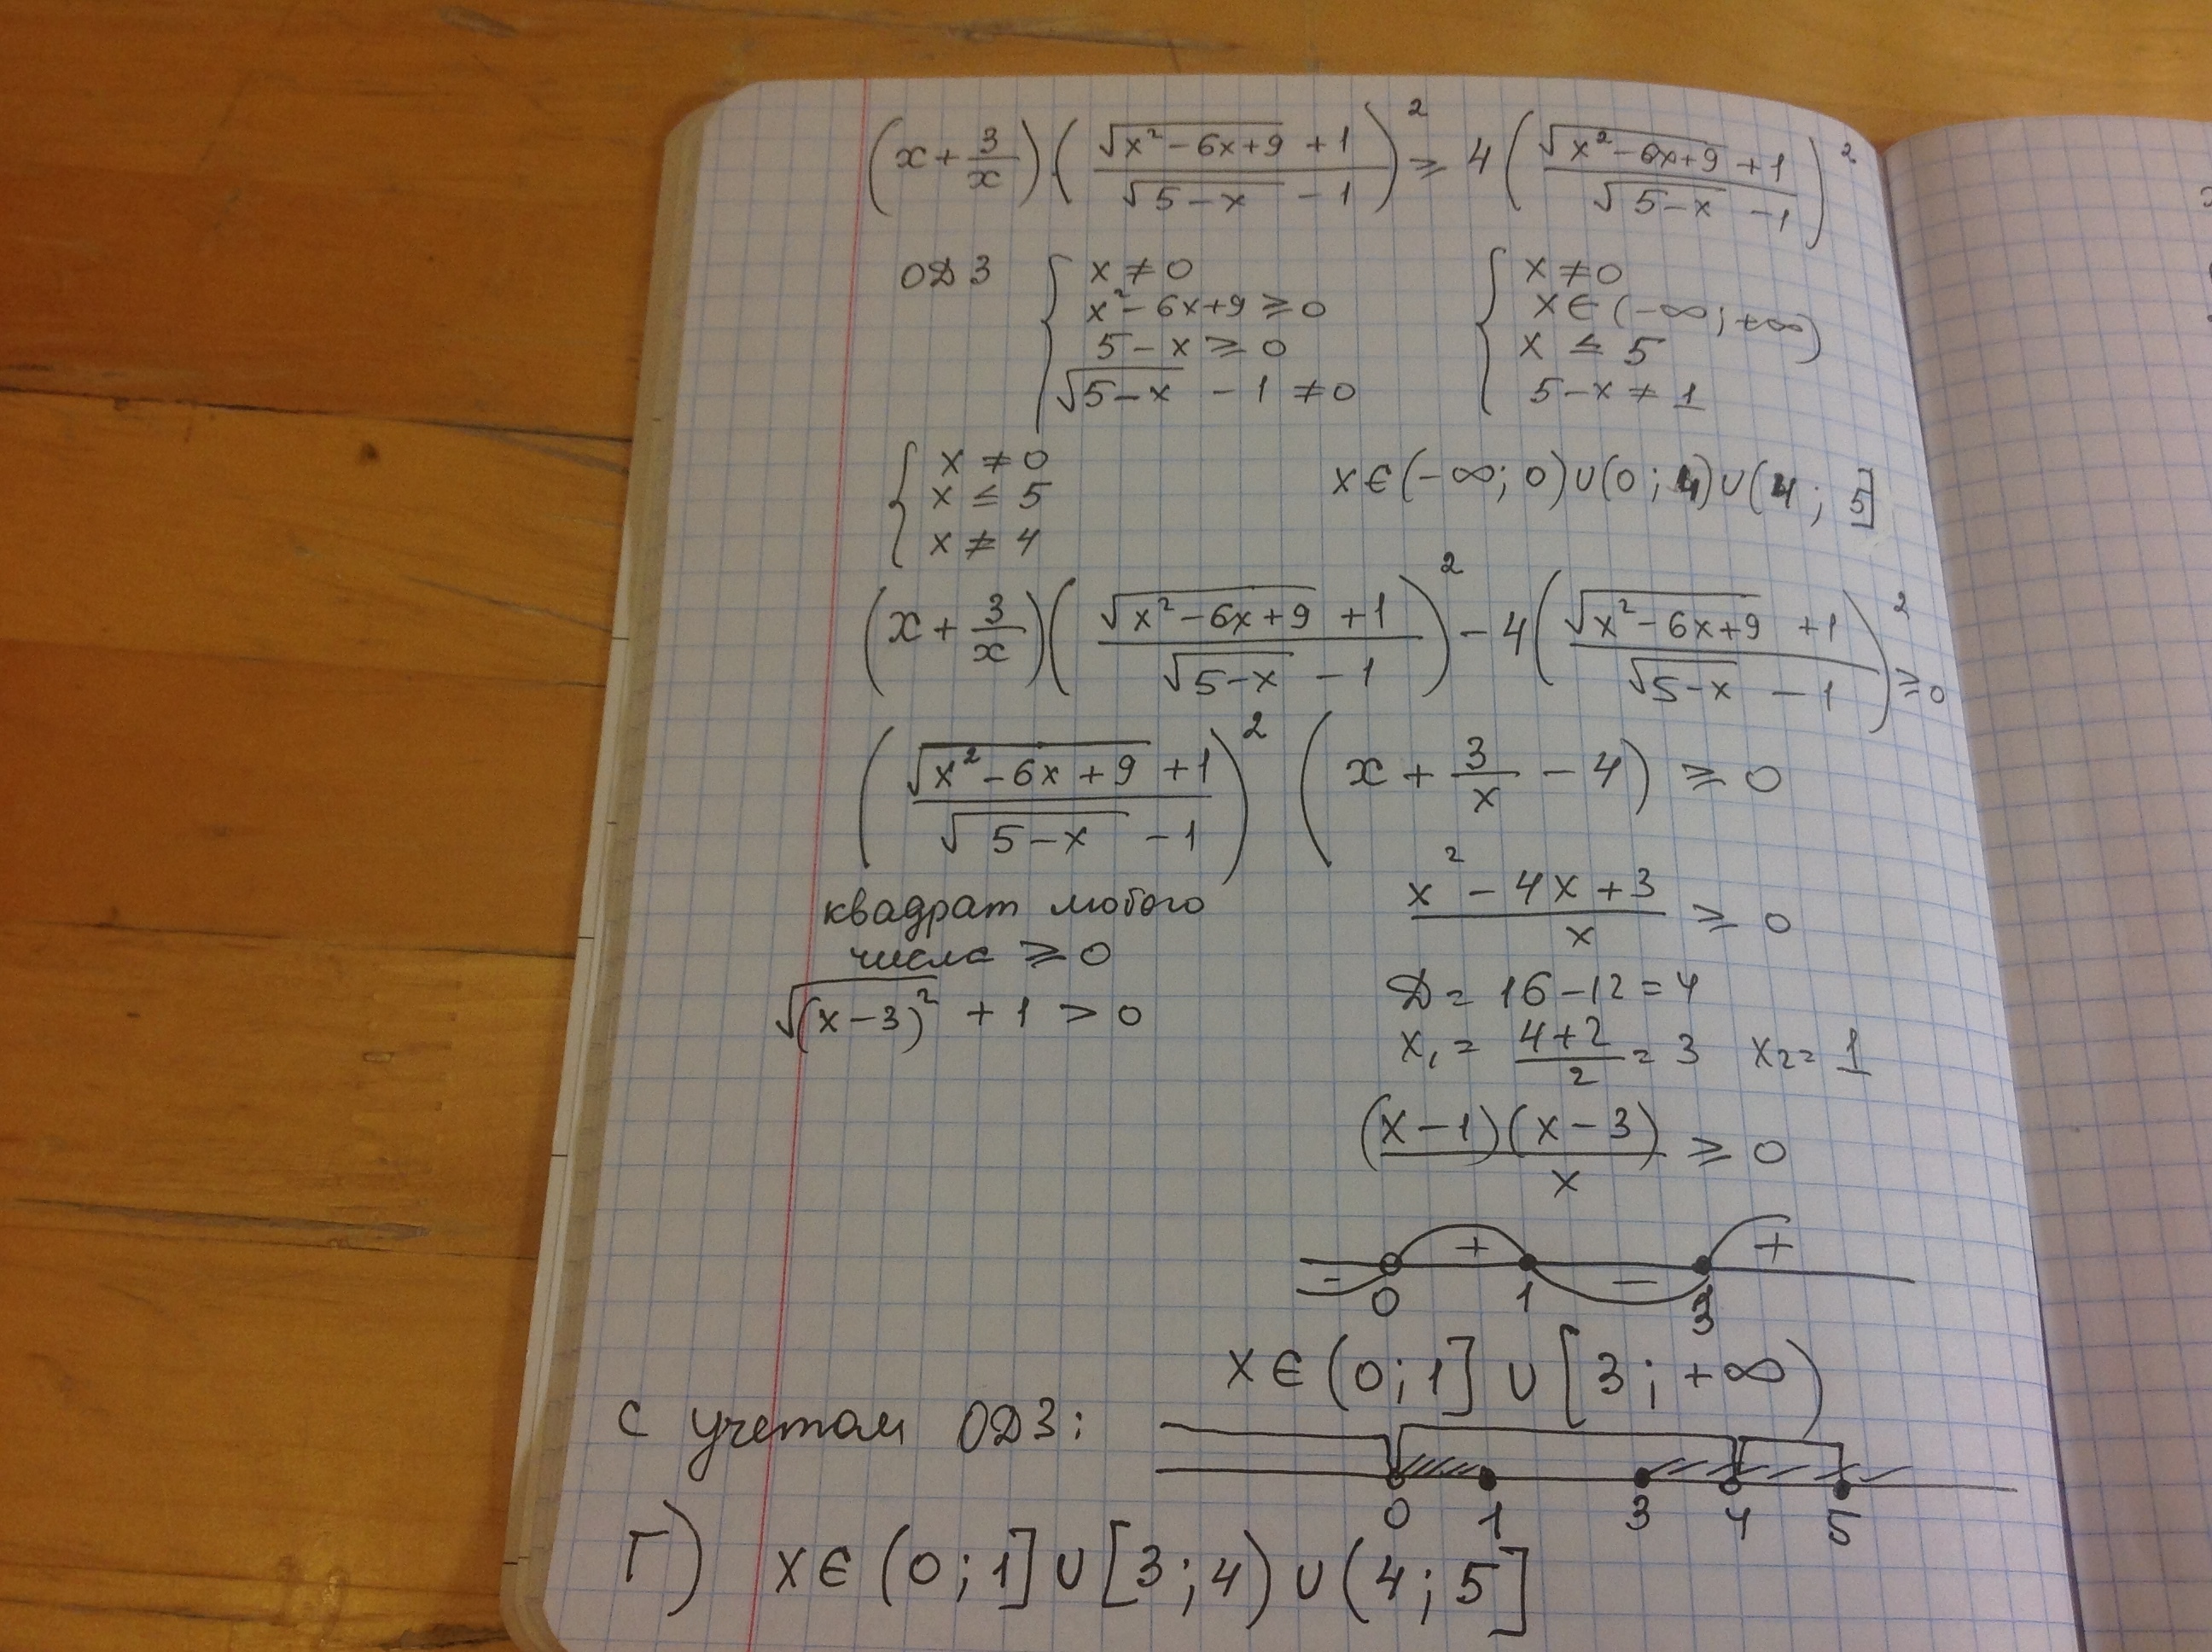 (x + 3/x) · ((√(x² - 6x + 9) + 1)/(√(5 - x) - 1))² ≥ 4((√(x² - 6x + 9) + 1)/(√(5 - x) - 1))²
ОДЗ { x ≠ 0 { x ≠ 0
x² - 6x + 9 ≥ 0 x ∈ (-∞; +∞)
5 - x ≥ 0 x ≤ 5
√(5 - x) - 1 ≠ 0 5 - x ≠ 1
{ x ≠ 0
x ≤ 5 x ∈ (-∞; 0) ∪ (0; 4) ∪ (4; 5]
x ≠ 4
(x + 3/x)((√(x² - 6x + 9) + 1)/(√(5 - x) - 1))² - 4((√(x² - 6x + 9) + 1)/(√(5 - x) - 1))² ≥ 0
((√(x² - 6x + 9) + 1)/(√(5 - x) - 1))² (x + 3/x - 4) ≥ 0
квадрат любого
числа ≥ 0
√((x - 3)²) + 1 > 0
(x² - 4x + 3)/x ≥ 0
Д = 16 - 12 = 4
x₁ = (4 + 2)/2 = 3 x₂ = 1
((x - 1)(x - 3))/x ≥ 0
- + - +
0 1 3
x ∈ (0; 1] ∪ [3; +∞)
с учетом ОДЗ:
0 1 3 4 5
Г) x ∈ (0; 1] ∪ [3; 4) ∪ (4; 5]